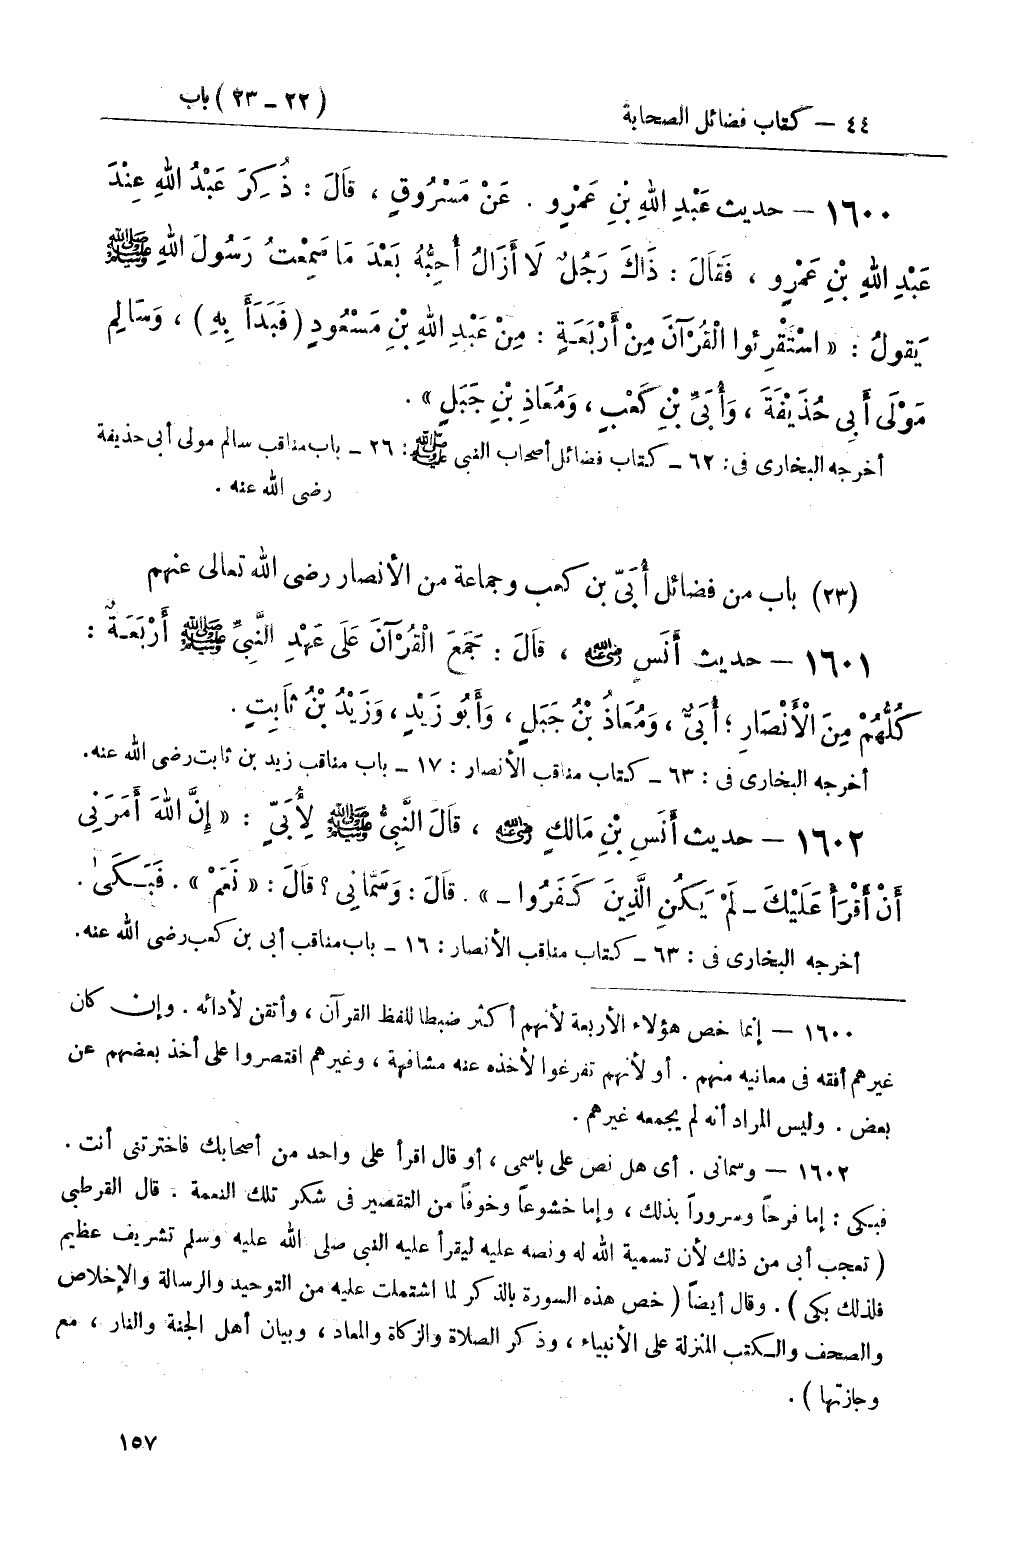 ٤٤ – كتاب فضائل الصحابة (٢٢ – ٢٣) باب
١٦٠٠ – حديث عَبْدِ اللهِ بْنِ عَمْرٍو . عَنْ مَسْرُوقٍ ، قَالَ : ذُكِرَ عَبْدُ اللهِ عِنْدَ
عَبْدِ اللهِ بْنِ عَمْرٍو ، فَقَالَ : ذَاكَ رَجُلٌ لَا أَزَالُ أُحِبُّهُ بَعْدَ مَا سَمِعْتُ رَسُولَ اللهِ ﷺ
يَقُولُ : « اسْتَقْرِئوا الْقُرْآنَ مِنْ أَرْبَعَةٍ : مِنْ عَبْدِ اللهِ بْنِ مَسْعُودٍ (فَبَدَأَ بِهِ) ، وَسَالِمٍ
مَوْلَى أَبِي حُذَيْفَةَ ، وَأُبَيِّ بْنِ كَعْبٍ ، وَمُعَاذِ بْنِ جَبَلٍ » .
أخرجه البخارى فى : ٦٢ – كتاب فضائل أصحاب النبى ﷺ : ٢٦ – باب مناقب سالم مولى أبى حذيفة
رضى الله عنه .
(٢٣) باب من فضائل أُبَيّ بن كعب وجماعة من الأنصار رضى الله تعالى عنهم
١٦٠١ – حديث أَنَسٍ رضي الله عنه ، قَالَ : جَمَعَ الْقُرْآنَ عَلَى عَهْدِ النَّبِيِّ ﷺ أَرْبَعَةٌ :
كُلُّهُمْ مِنَ الْأَنْصَارِ ؛ أُبَيٌّ ، وَمُعَاذُ بْنُ جَبَلٍ ، وَأَبُو زَيْدٍ ، وَزَيْدُ بْنُ ثَابِتٍ .
أخرجه البخارى فى : ٦٣ – كتاب مناقب الأنصار : ١٧ – باب مناقب زيد بن ثابت رضى الله عنه.
١٦٠٢ – حديث أَنَسِ بْنِ مَالكٍ رضي الله عنه ، قَالَ النَّبِيُّ ﷺ لِأُبَيٍّ : « إِنَّ اللهَ أَمَرَنِي
أَنْ أَقْرَأَ عَلَيْكَ – لَمْ يَكُنِ الَّذِينَ كَفَرُوا – » . قَالَ : وَسَمَّانِي ؟ قَالَ : « نَعَمْ » . فَبَكَىٰ .
أخرجه البخارى فى : ٦٣ – كتاب مناقب الأنصار : ١٦ – باب مناقب أبى بن كعب رضى الله عنه.
١٦٠٠ – إنما خص هؤلاء الأربعة لأنهم أكثر ضبطا للفظ القرآن ، وأتقن لأدائه . وإن كان
غيرهم أفقه فى معانيه منهم . أو لأنهم تفرغوا لأخذه عنه مشافهة ، وغيرهم اقتصروا على أخذ بعضهم عن
بعض . وليس المراد أنه لم يجمعه غيرهم .
١٦٠٢ – وسمانى . أى هل نص على باسمى ، أو قال اقرأ على واحد من أصحابك فاخترتنى أنت .
فبكى : إما فرحاً وسروراً بذلك ، وإما خشوعاً وخوفاً من التقصير فى شكر تلك النعمة . قال القرطبى
( تعجب أبى من ذلك لأن تسمية الله له ونصه عليه ليقرأ عليه النبى صلى الله عليه وسلم تشريف عظيم
فلذلك بكى ) . وقال أيضاً ( خص هذه السورة بالذكر لما اشتملت عليه من التوحيد والرسالة والإخلاص
والصحف والكتب المنزلة على الأنبياء ، وذكر الصلاة والزكاة والمعاد ، وبيان أهل الجنة والنار ، مع
وجازتها ) .
١٥٧